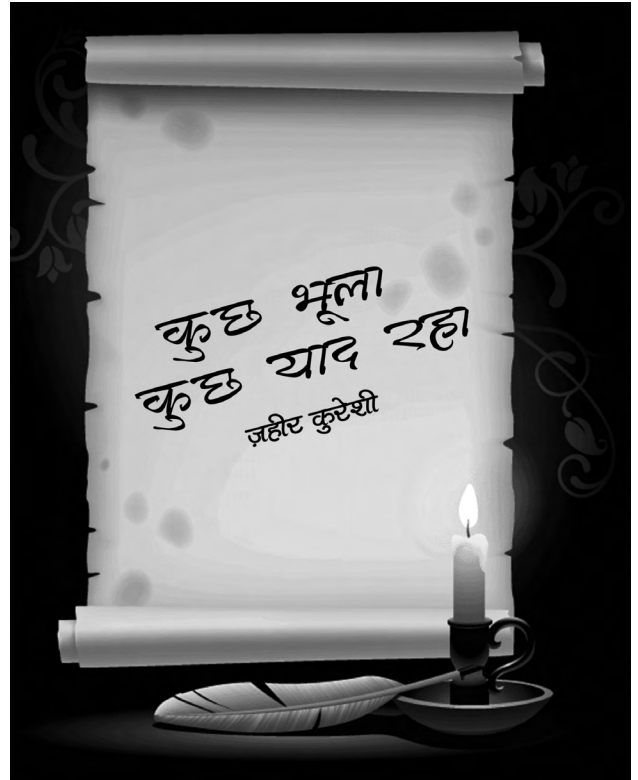 कुछ भूला
कुछ याद रहा
ज़हीर कुरेशी